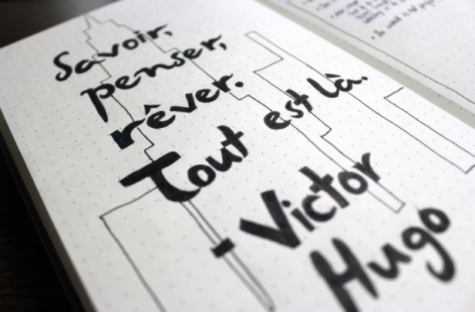 Savoir,
penser,
rêver.
Tout est là.
- Victor
Hugo